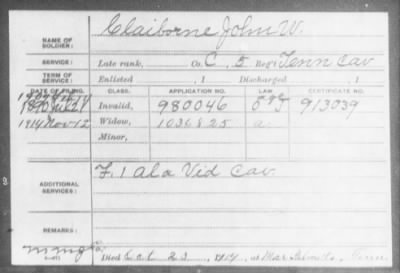 NAME OF SOLDIER: Claiborne John W.
SERVICE: Late rank, Co. C, 5 Reg't Tenn Cav
TERM OF SERVICE: Enlisted , 1 Discharged , 1
DATE OF FILING. CLASS. APPLICATION NO. LAW CERTIFICATE NO.
1890 Jul 24 Invalid, 980046 913039
1914 Nov 12 Widow, 1036825 a
Minor,
ADDITIONAL SERVICES: F. 1 Ala Vid Cav
REMARKS:
Died Oct 23, 1914, at Tenn.